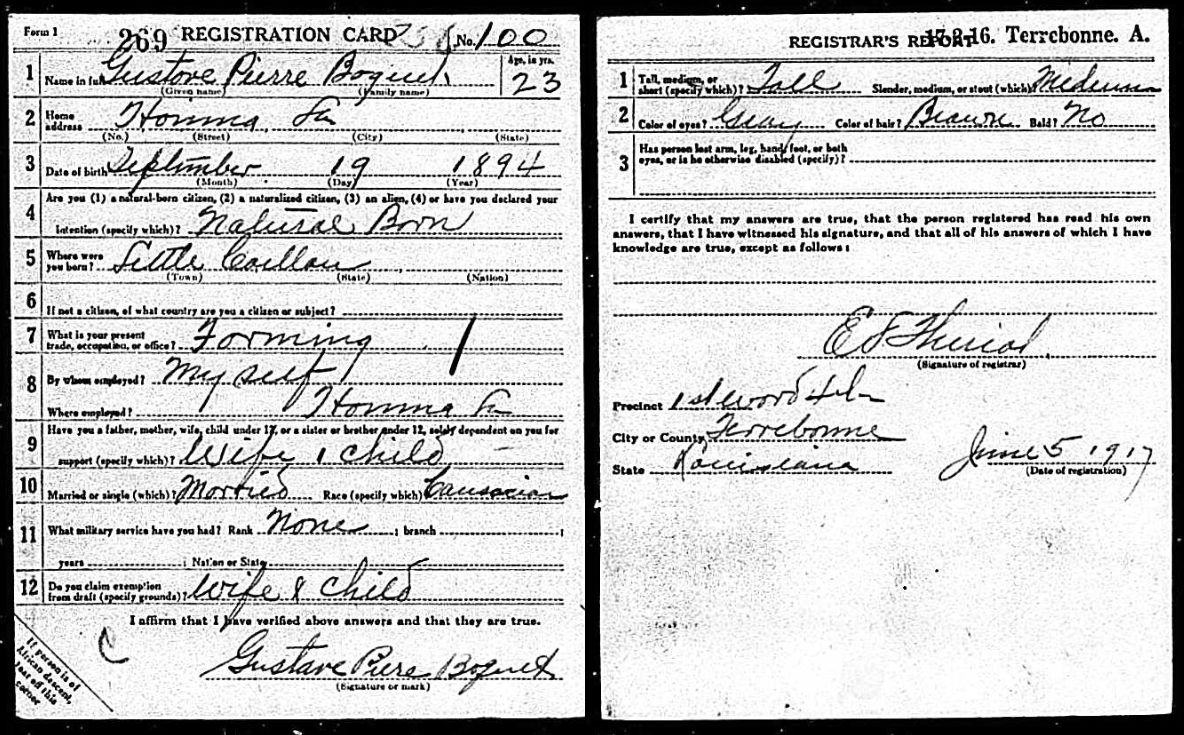 Form 1 269 REGISTRATION CARD No. 100
1 Name in full Gustave Pierre Boquet Age, in yrs. 23
(Given name) (Family name)
2 Home address Houma La
(No.) (Street) (City) (State)
3 Date of birth September 19 1894
(Month) (Day) (Year)
4 Are you (1) a natural-born citizen, (2) a naturalized citizen, (3) an alien, (4) or have you declared your
intention (specify which)? Natural Born
5 Where were you born? Little Caillou
(Town) (State) (Nation)
6 If not a citizen, of what country are you a citizen or subject?
7 What is your present trade, occupation, or office? Farming
8 By whom employed? My self
Where employed? Houma La
9 Have you a father, mother, wife, child under 12, or a sister or brother under 12, solely dependent on you for
support (specify which)? Wife 1 child
10 Married or single (which)? Married Race (specify which) Caucasian
11 What military service have you had? Rank None ; branch ;
years ; Nation or State
12 Do you claim exemption from draft (specify grounds)? Wife & Child
I affirm that I have verified above answers and that they are true.
Gustave Piere Boquet
(Signature or mark)
If person is of
African descent,
tear off this
corner
17-2-16. Terrebonne. A.
REGISTRAR'S REPORT
1 Tall, medium, or short (specify which)? Tall Slender, medium, or stout (which) Medium
2 Color of eyes? Gray Color of hair? Brown Bald? No
3 Has person lost arm, leg, hand, foot, or both
eyes, or is he otherwise disabled (specify)?
I certify that my answers are true, that the person registered has read his own
answers, that I have witnessed his signature, and that all of his answers of which I have
knowledge are true, except as follows:
(Signature of registrar)
Precinct 1st word
City or County Terrebonne
State Louisiana June 5 1917
(Date of registration)